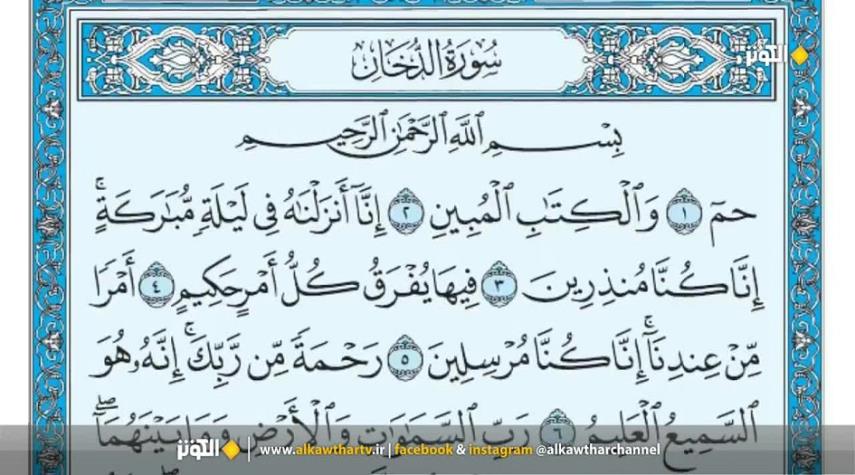 سُورَةُ الدُّخَانِ
الكوثر
بِسْمِ ٱللَّهِ ٱلرَّحْمَٰنِ ٱلرَّحِيمِ
حمٓ ١ وَٱلْكِتَٰبِ ٱلْمُبِينِ ٢ إِنَّآ أَنزَلْنَٰهُ فِى لَيْلَةٍ مُّبَٰرَكَةٍۚ
إِنَّا كُنَّا مُنذِرِينَ ٣ فِيهَا يُفْرَقُ كُلُّ أَمْرٍ حَكِيمٍ ٤ أَمْرًا
مِّنْ عِندِنَآۚ إِنَّا كُنَّا مُرْسِلِينَ ٥ رَحْمَةً مِّن رَّبِّكَۚ إِنَّهُۥ هُوَ
ٱلسَّمِيعُ ٱلْعَلِيمُ ٦ رَبِّ ٱلسَّمَٰوَٰتِ وَٱلْأَرْضِ وَمَا بَيْنَهُمَآۖ
الكوثر www.alkawthartv.ir | facebook & instagram @alkawtharchannel